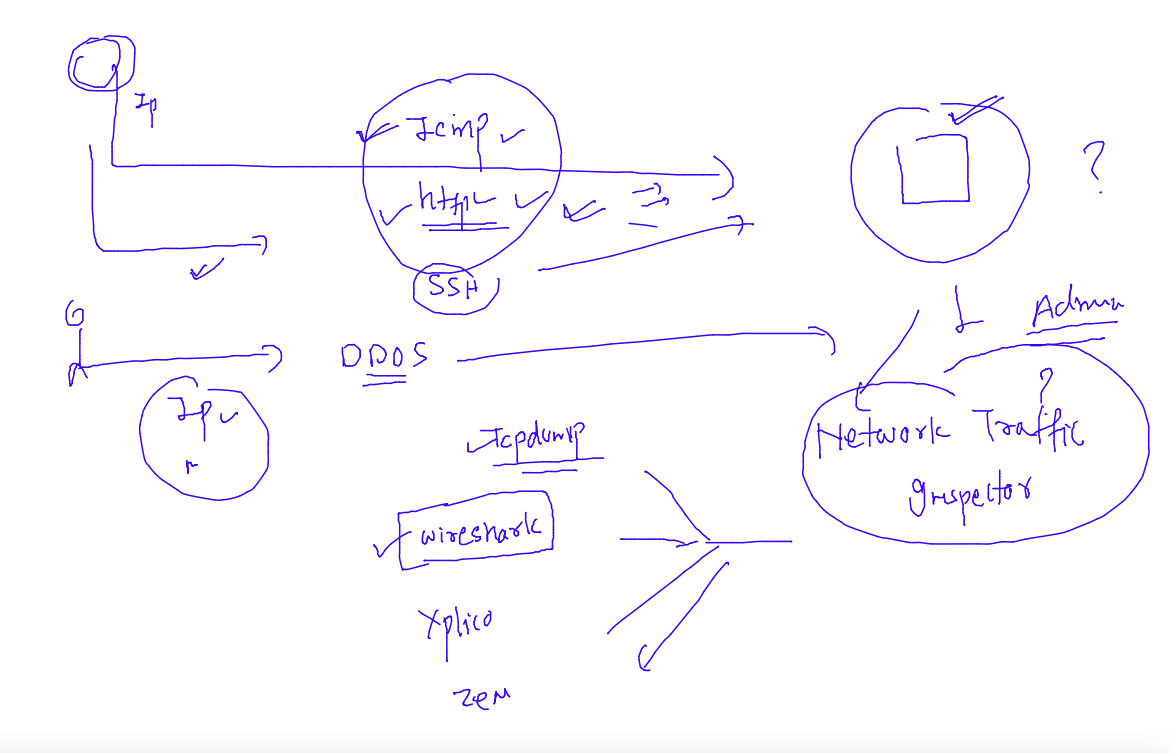 Ip
Icmp
http
SSH
?
Admin
DDOS
Ip
?
Network Traffic
Inspector
Tcpdump
wireshark
Xplico